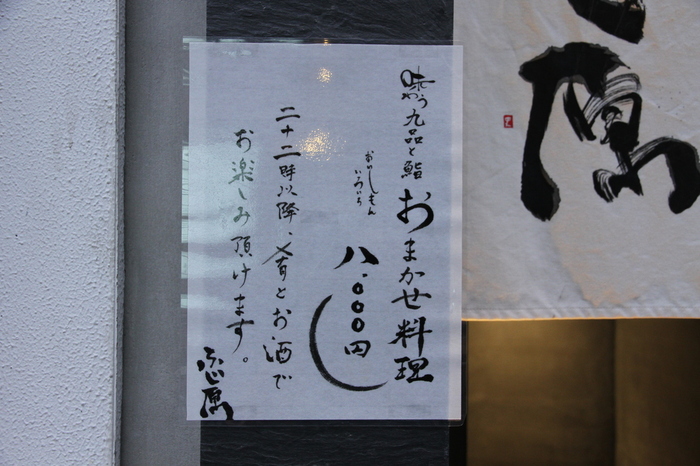 味わう九品と鮨 おまかせ料理
おいしもん
いろいろ
八.〇〇〇円
二十二時以降、肴とお酒で
お楽しみ頂けます。